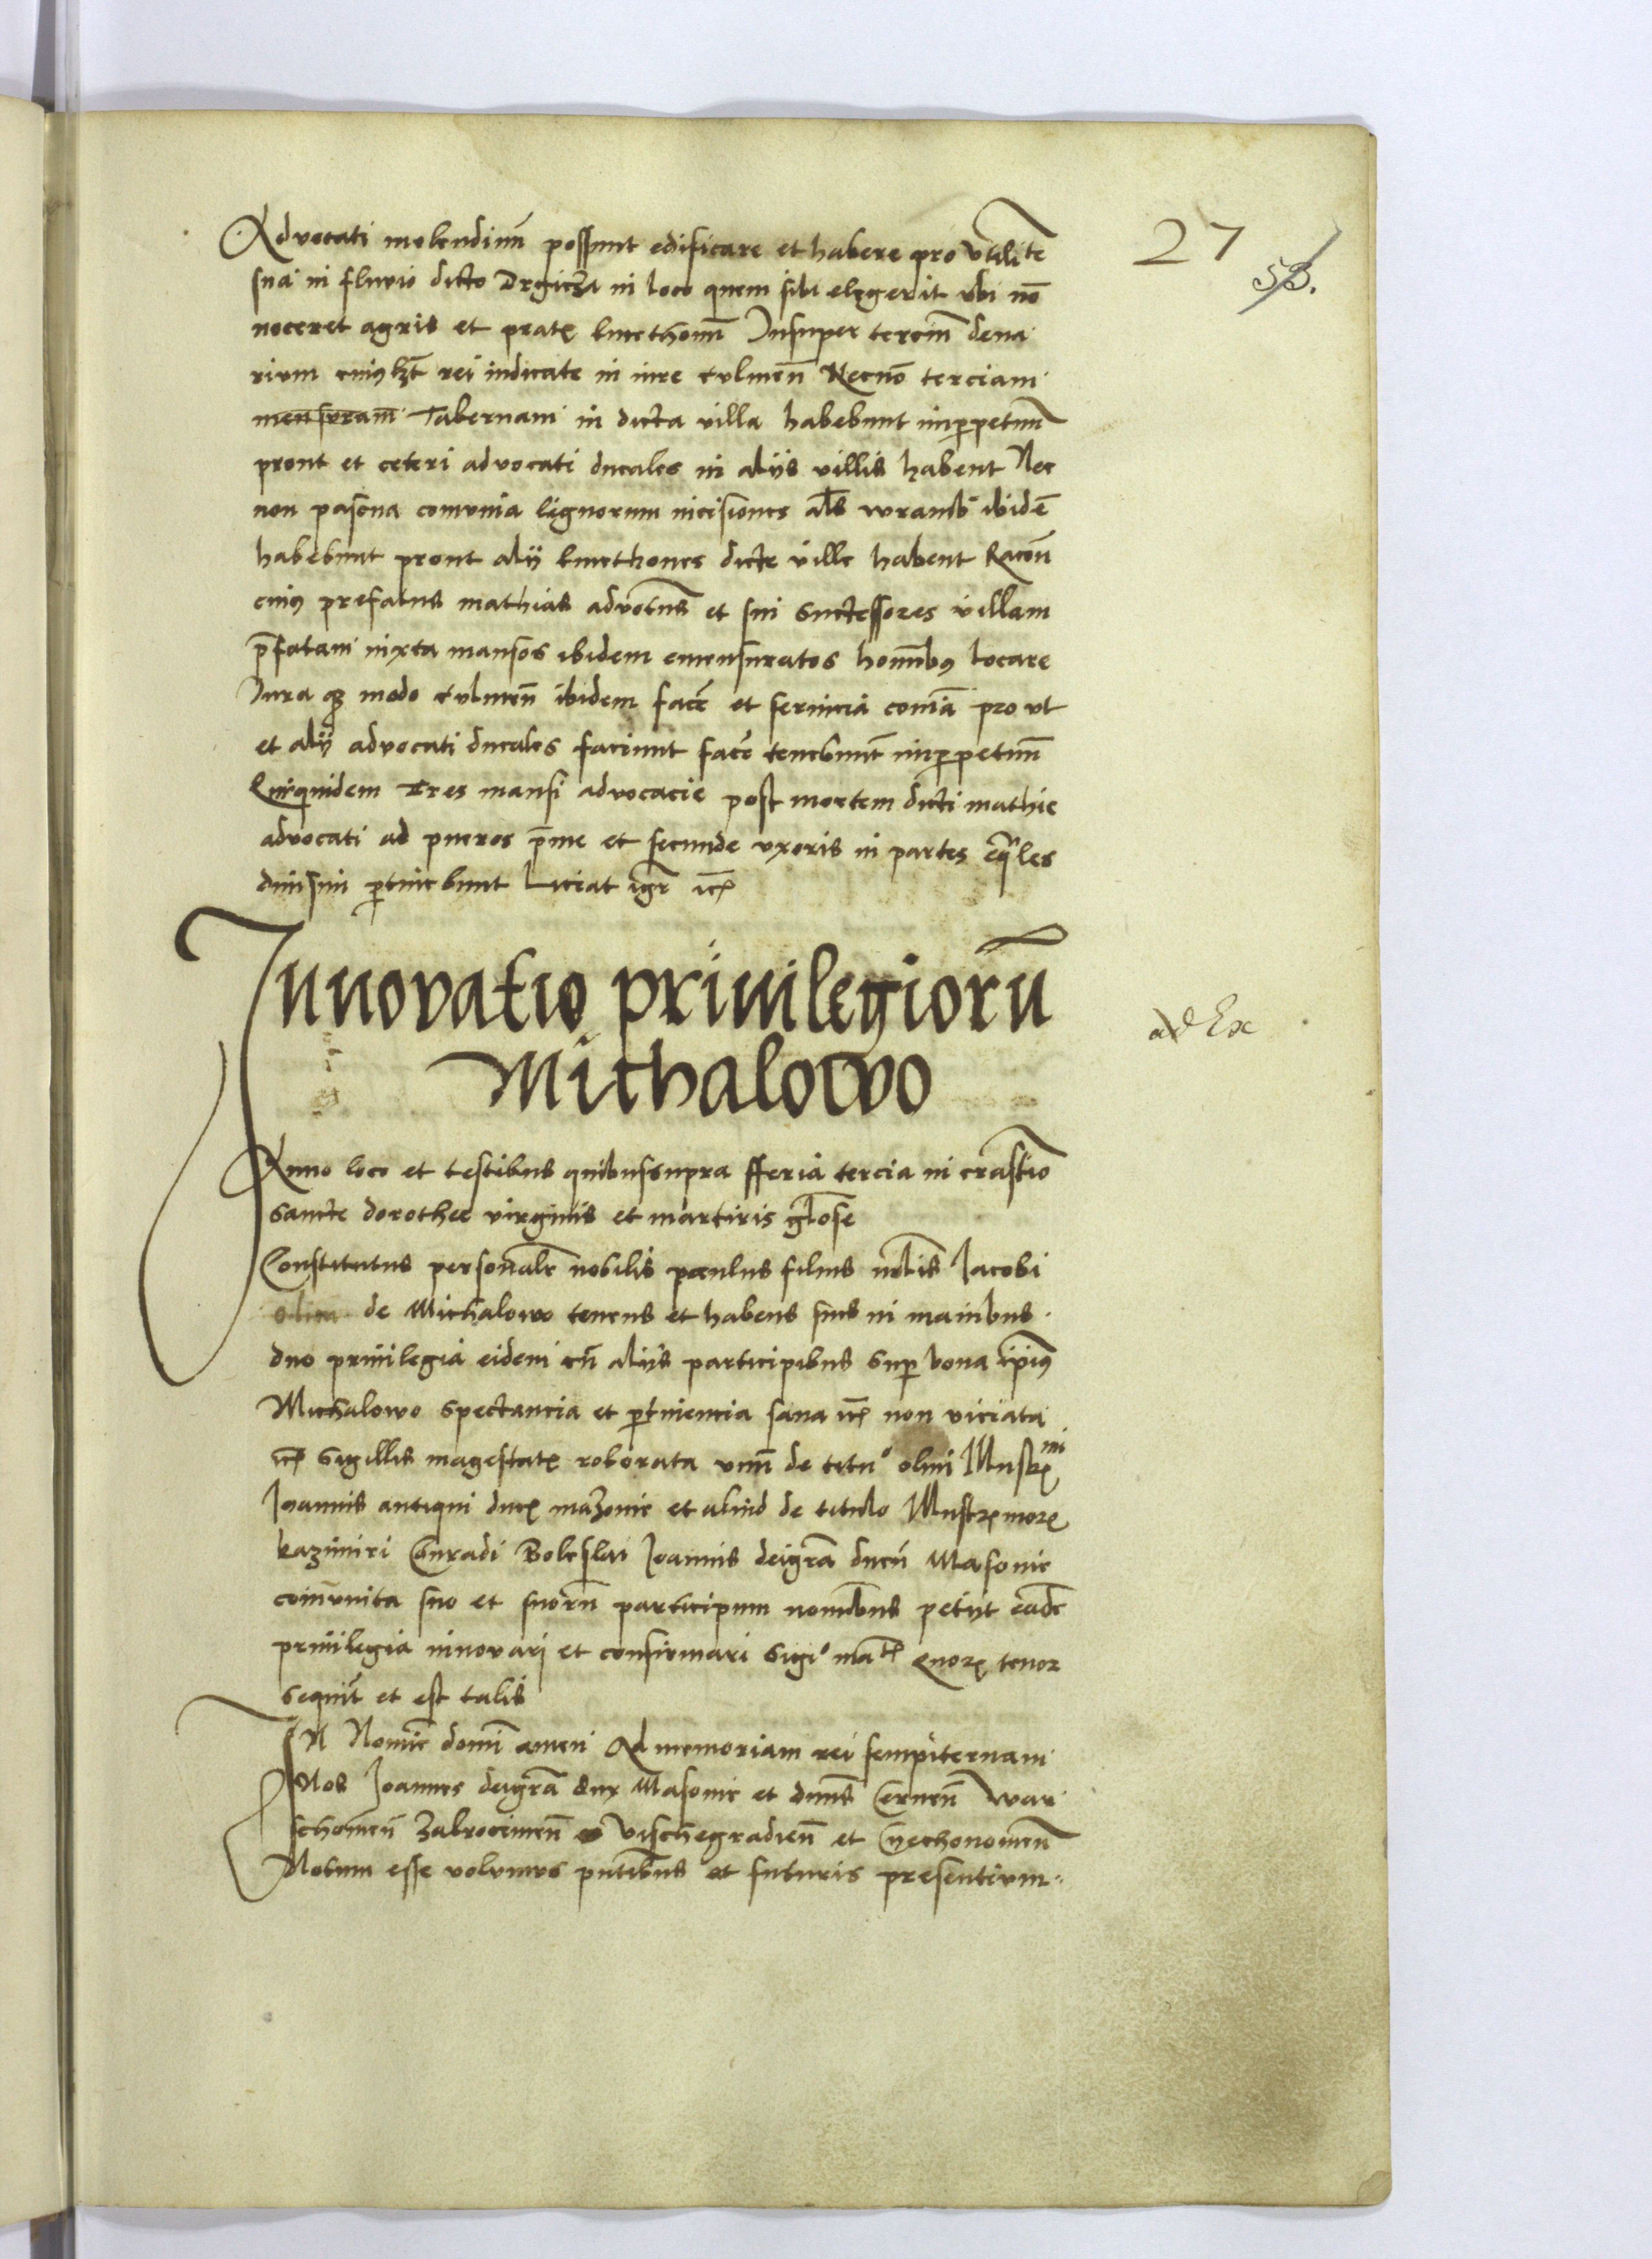 Advocati molendinū possunt edificare et habere pro vtilite
sua in fluvio dicto Drgicza in loco quem sibi elegerit vbi nō
noceret agris et pratꝭ kmethonū Insuper terciū dena
rium cuiuslibꝫ rei iudicate in iure culmen̄ Necnō terciam
mensuram Tabernam in dicta villa habebunt inperpetuū
prout et ceteri advocati ducales in aliis villis habent Nec
non pascua comunia lignorum incisiones als wramb ibidē
habebunt prout alii kmethones dicte ville habent Racōn
cuiꝰ prefatus mathias advotus et sui successores villam
p̄fatam iuxta mansos ibidem emensuratos hominibꝰ locare
Iura qꝫ modo culmen̄ ibidem facē et seruicia comīa pro ut
et alii advocati ducales faciunt facē tenebunt inperpetuū
Quiquidem Tres mansi advocacie post mortem dicti mathie
advocati ad pueros p̄me et secunde vxoris in partes eq̄les
diuisim ꝑtinebunt
Innovatio priuilegiorū
Michalowo
Anno loco et testibus quibussupra fferia tercia in crastīo
sancte dorothee virginis et martiris gl̄ose
Constitutus personalr̄ nobilis paulus filius nobl̄is Jacobi
olim de Michalowo tenens et habens suis in manibus
duo priuilegia eidem cū aliis participibus suꝑ bona ip̄iꝰ
Michalowo spectancia et ꝑtinencia sana non viciata
sigillis magestatꝭ roborata vnū de titu° olim Illustrꝭmi
Joannis antiqui ducꝭ mazouie et aliud de titulo Illustrꝭmorꝭ
kazimiri Conradi Boleslai Joannis deigrā ducū Masouie
coniuncta suo et suorū participum nominībus petiit eadē
priuilegia innovari et confirmari sigi° matꝭ Quorꝭ tenor
sequit̄ et est talis
IN Nomīe domī amen Ad memoriam rei sempiternam
Nos Joannes deigrā dux Masouie et dnūs Cernen̄ war
schouien̄ zakrocimen̄ Vischegradien̄ et Czechonouien̄
Notum esse volumus pn̄tibus et futuris presentium
27
53.
ad Ex